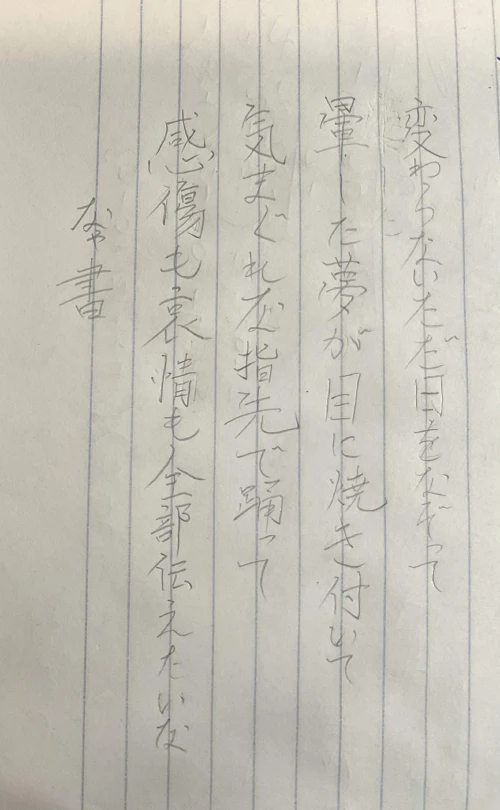 変わらないただ日をなぞって
暈した夢が目に焼き付いて
気まぐれな指先で踊って
感傷も哀情も全部伝えたいな
なや書